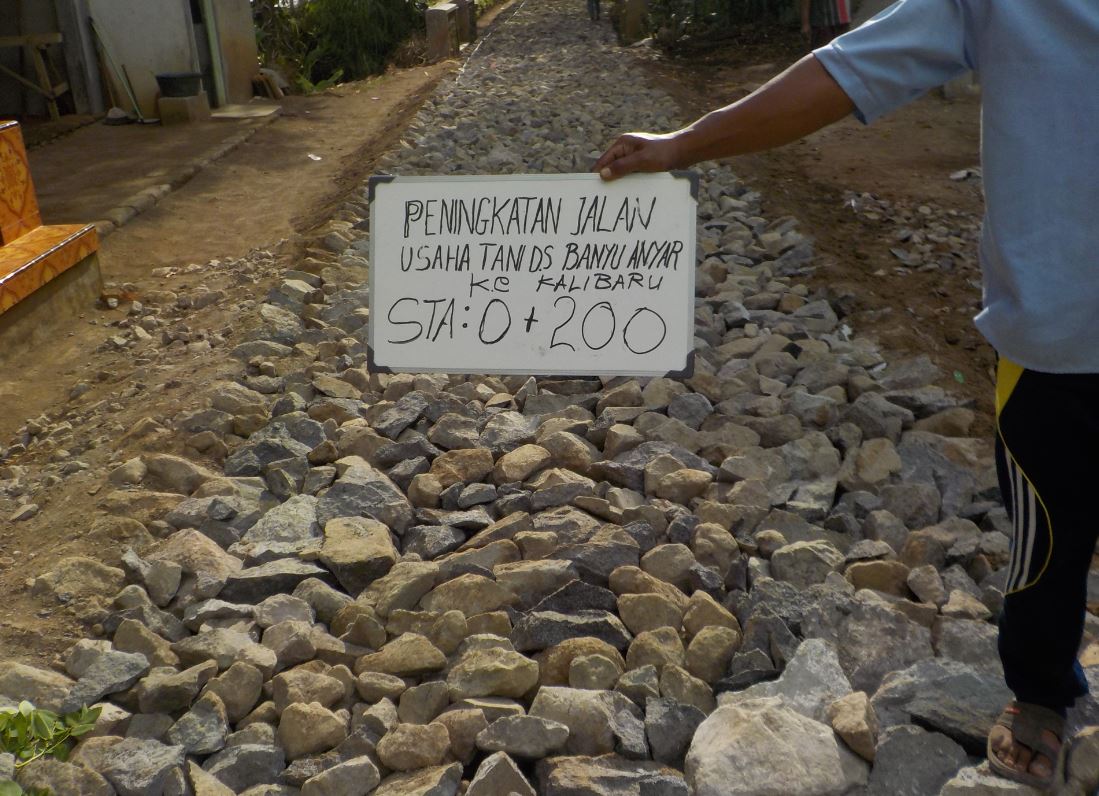 PENINGKATAN JALAN
USAHA TANI DS BANYU ANYAR
KE KALIBARU
STA: 0 + 200